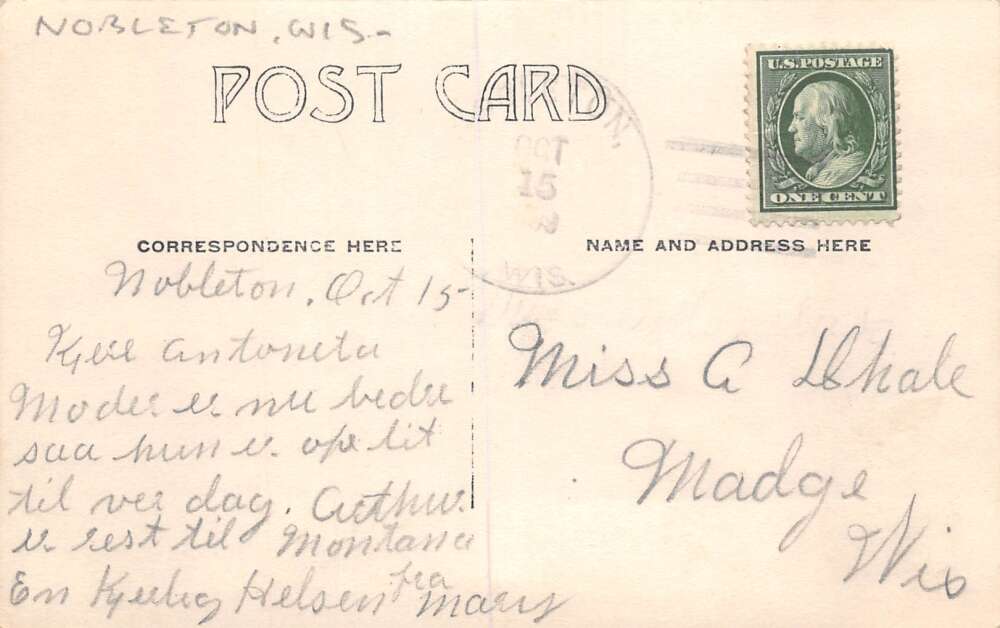 NOBLETON, WIS-
POST CARD
U.S. POSTAGE
ONE CENT
ON,
OCT
15
WIS.
CORRESPONDENCE HERE
NAME AND ADDRESS HERE
Nobleton, Oct 15-
Kjere Antoneta
Moder er nu bedre
saa hun er ope lit
til ver dag. Arthur
er rest til Montana
En Kjerlig Helsen fra Mary
Miss A
Madge
Wis